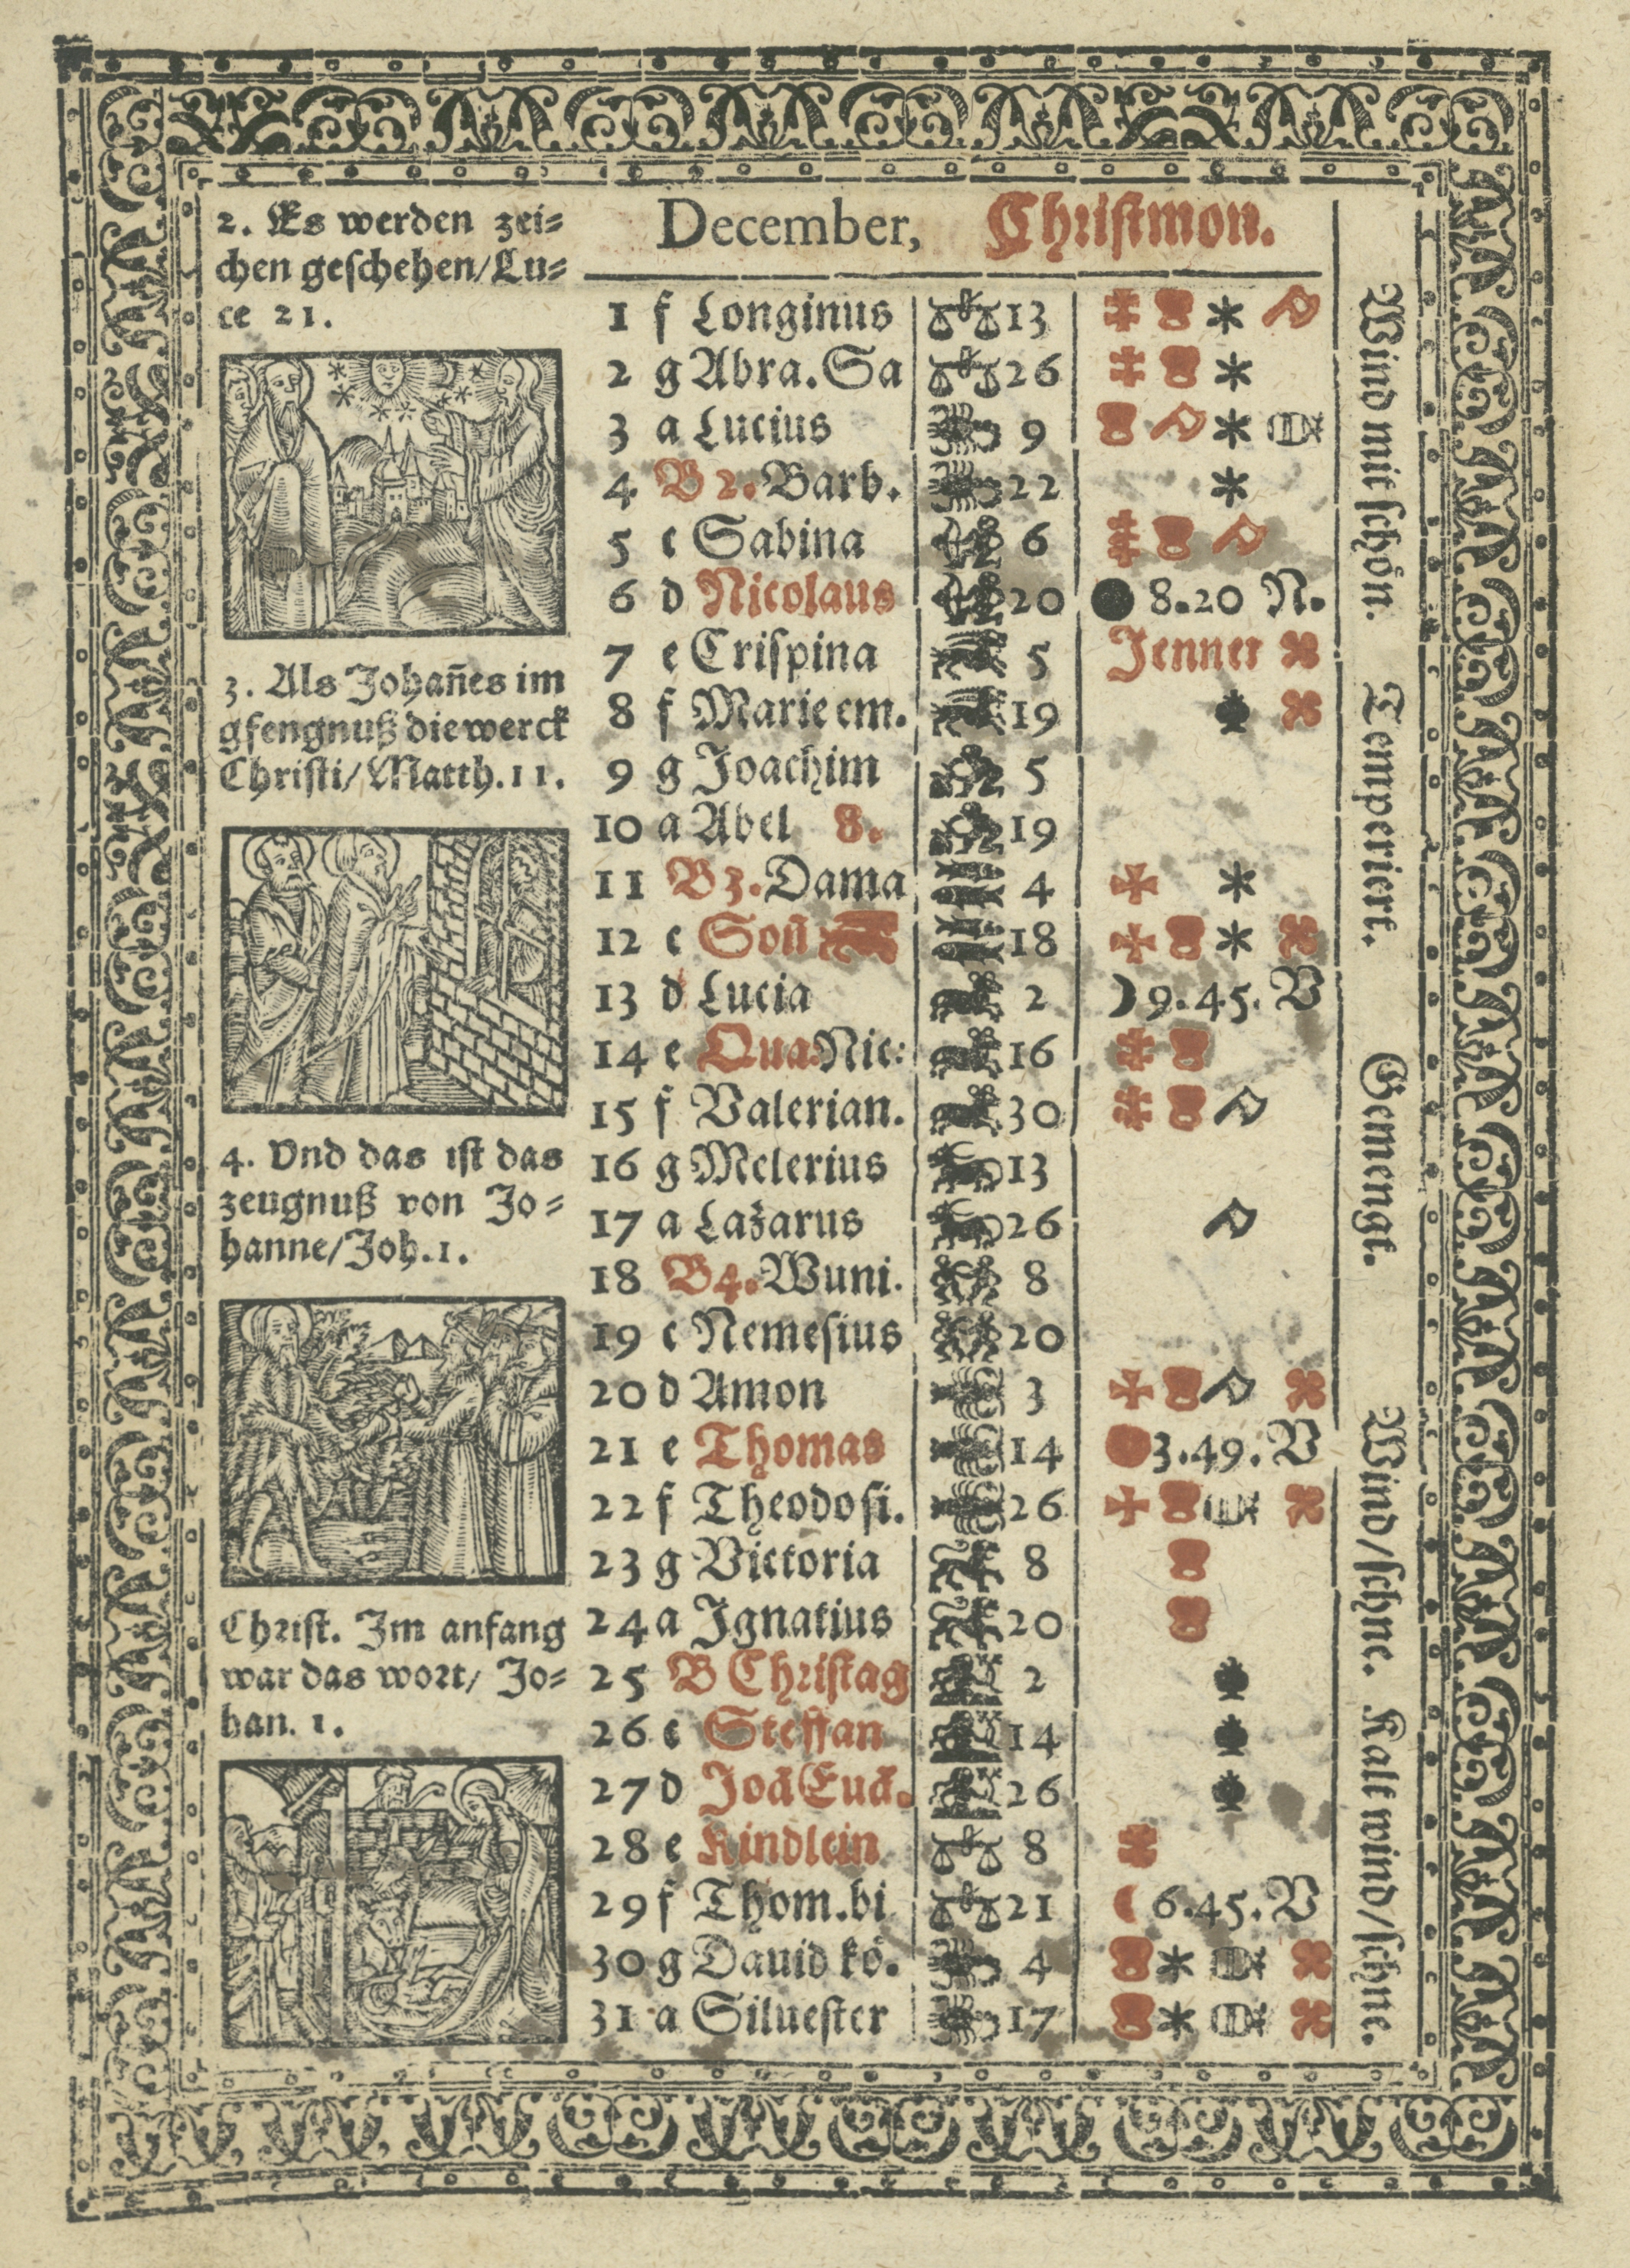 2. Es werden zei⸗
chen geschehen/Lu⸗
ce 21.
3. Als Johan̄es im
gfengnuß die werck
Christi/Matth.11.
4. Vnd das ist das
zeugnuß von Jo⸗
hanne/Joh.1.
Christ. Im anfang
war das wort/ Jo⸗
han. 1.
December, Christmon.
1 f Longinus 13
2 g Abra.Sa 26
3 a Lucius 9
4 B 2. Barb. 22
5 c Sabina 6
6 d Nicolaus 20 8.20 N.
7 e Crispina 5 Jenner
8 f Marie em. 19
9 g Joachim 5
10 a Abel 8. 19
11 B3. Dama 4
12 c Soñ 18
13 d Lucia 2 9.45. V
14 e Qua. Nic: 16
15 f Valerian. 30
16 g Melerius 13
17 a Lazarus 26
18 B4. Wuni. 8
19 c Nemesius 20
20 d Amon 3
21 e Thomas 14 3.49. V
22 f Theodosi. 26
23 g Victoria 8
24 a Ignatius 20
25 B Christag 2
26 c Steffan 14
27 d Joā Euā. 26
28 e Kindlein 8
29 f Thom.bi 21 6.45. V
30 g Dauid kö. 4
31 a Siluester 17
Wind mit schön. Temperiert. Gemengt. Wind/schne. Kalt wind/schne.